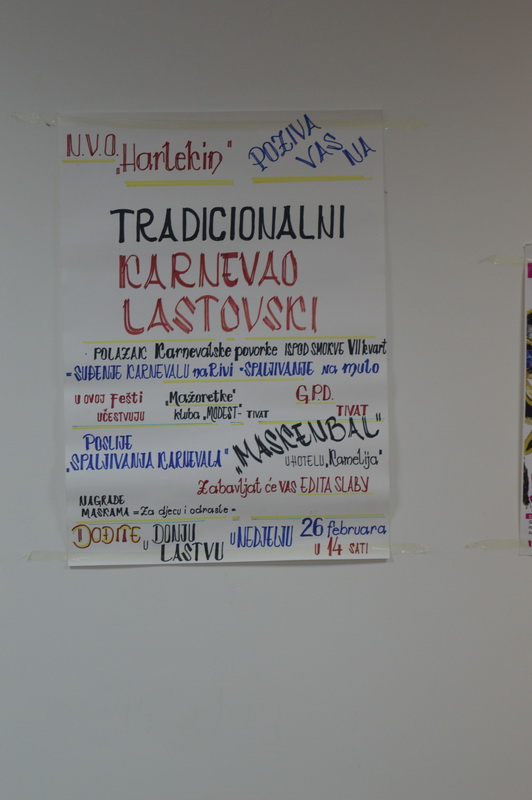 N.V.O. „Harlekin" POZIVA VAS NA
TRADICIONALNI
KARNEVAO
LASTOVSKI
POLAZAK Karnevalske povorke ISPOD SMOKVE VII kvart
= SUĐENJE KARNEVALU na Rivi = SPALJIVANJE na mulo
U OVOJ FEŠTI UČESTVUJU „Mažoretke" kluba „MODEST"- TIVAT G.P.D. TIVAT
POSLIJE „SPALJIVANJA KARNEVALA" „MASKENBAL"
U HOTELU „Kamelija"
Zabavljat će VAS EDITA SLABY
NAGRADE
MASKAMA = Za djecu i odrasle =
DOĐITE U DONJU LASTVU U NEDJELJU 26 februara
U 14 SATI